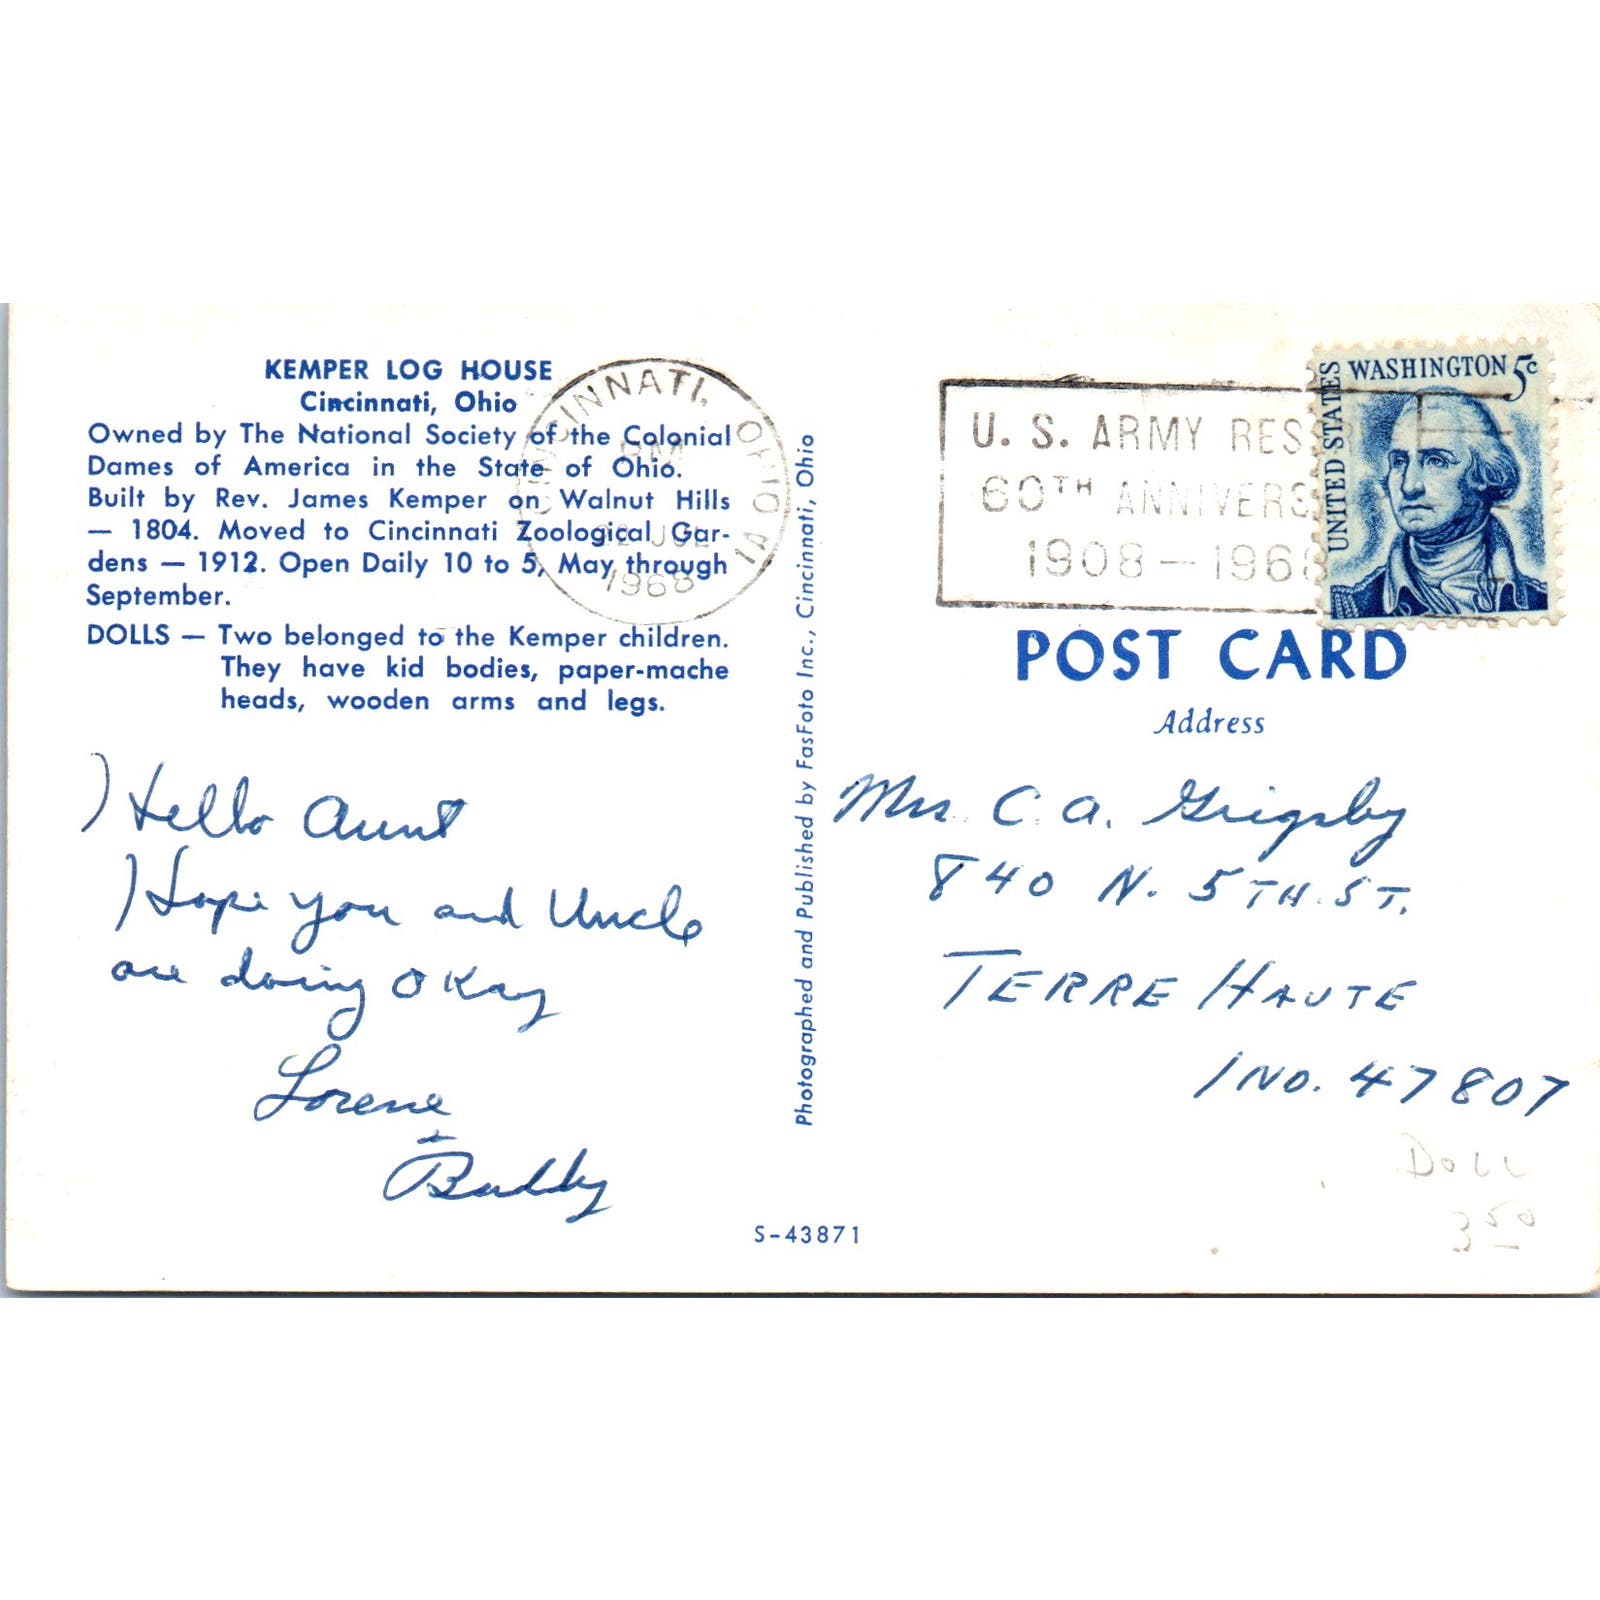 KEMPER LOG HOUSE
Cincinnati, Ohio
Owned by The National Society of the Colonial
Dames of America in the State of Ohio.
Built by Rev. James Kemper on Walnut Hills
— 1804. Moved to Cincinnati Zoological Gar-
dens — 1912. Open Daily 10 to 5, May through
September.
DOLLS — Two belonged to the Kemper children.
They have kid bodies, paper-mache
heads, wooden arms and legs.
Hello Aunt
Hope you and Uncle
are doing Okay
Lorene
+
Buddy
CINCINNATI, OHIO
PM
JUL
1968
Photographed and Published by FasFoto Inc., Cincinnati, Ohio
S-43871
U. S. ARMY RES
60TH ANNIVERS
1908 — 1968
UNITED STATES
WASHINGTON 5c
POST CARD
Address
Mrs. C. A. Grigsby
840 N. 5TH. ST.
TERRE HAUTE
IND. 47807
DOLL
3 50